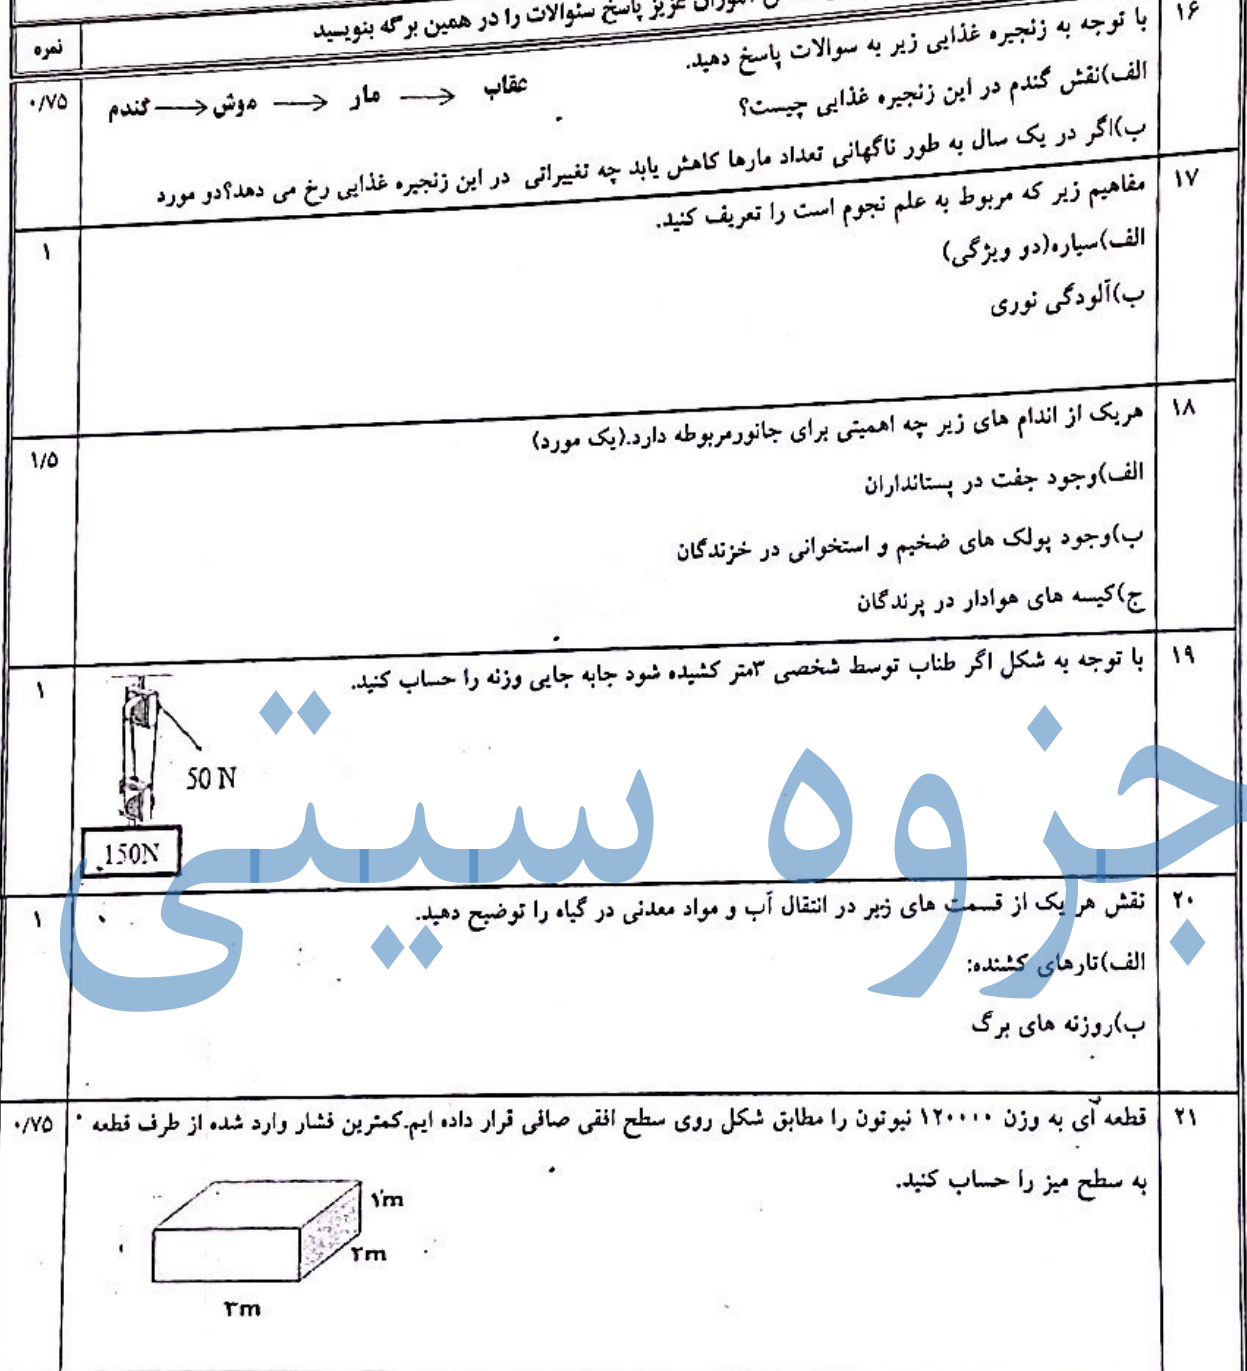 عزیز پاسخ سئوالات را در همین برگه بنویسید
نمره
۱۶
با توجه به زنجیره غذایی زیر به سوالات پاسخ دهید.
۰/۷۵
گندم → موش → مار → عقاب
الف)نقش گندم در این زنجیره غذایی چیست؟
ب)اگر در یک سال به طور ناگهانی تعداد مارها کاهش یابد چه تغییراتی در این زنجیره غذایی رخ می دهد؟دو مورد
۱۷
مفاهیم زیر که مربوط به علم نجوم است را تعریف کنید.
۱
الف)سیاره(دو ویژگی)
ب)آلودگی نوری
۱۸
هریک از اندام های زیر چه اهمیتی برای جانورمربوطه دارد.(یک مورد)
۱/۵
الف)وجود جفت در پستانداران
ب)وجود پولک های ضخیم و استخوانی در خزندگان
ج)کیسه های هوادار در پرندگان
۱۹
با توجه به شکل اگر طناب توسط شخصی ۳متر کشیده شود جابه جایی وزنه را حساب کنید.
۱
50 N
150N
جزوه سیتی
۲۰
نقش هر یک از قسمت های زیر در انتقال آب و مواد معدنی در گیاه را توضیح دهید.
۱
الف)تارهای کشنده:
ب)روزنه های برگ
۲۱
قطعه آی به وزن ۱۲۰۰۰۰ نیوتون را مطابق شکل روی سطح افقی صافی قرار داده ایم.کمترین فشار وارد شده از طرف قطعه
۰/۷۵
به سطح میز را حساب کنید.
۱m
۲m
۳m